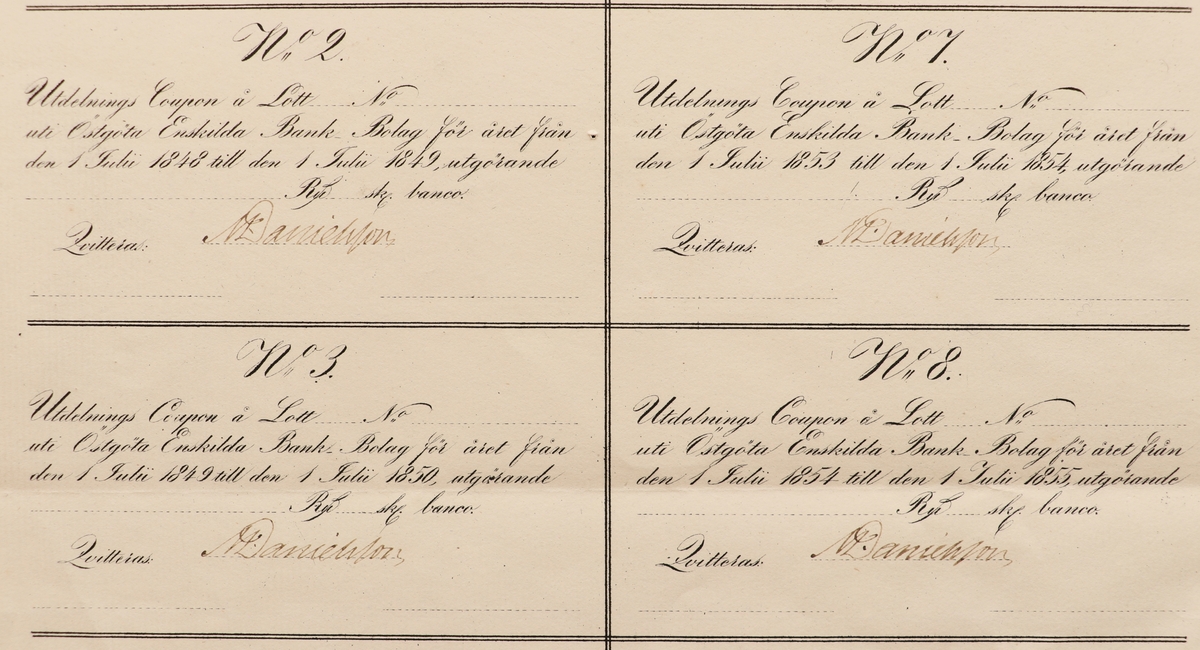 N:o 2.
Utdelnings Coupon å Lott N:o
uti Östgöta Enskilda Bank-Bolag för året från
den 1 Julii 1848 till den 1 Julii 1849, utgörande
Rd sk banco.
Qvitteras: Danielsson
N:o 7.
Utdelnings Coupon å Lott N:o
uti Östgöta Enskilda Bank-Bolag för året från
den 1 Julii 1853 till den 1 Julii 1854, utgörande
Rd sk banco.
Qvitteras: Danielsson
N:o 3.
Utdelnings Coupon å Lott N:o
uti Östgöta Enskilda Bank-Bolag för året från
den 1 Julii 1849 till den 1 Julii 1850, utgörande
Rd sk banco.
Qvitteras: Danielsson
N:o 8.
Utdelnings Coupon å Lott N:o
uti Östgöta Enskilda Bank-Bolag för året från
den 1 Julii 1854 till den 1 Julii 1855, utgörande
Rd sk banco.
Qvitteras: Danielsson